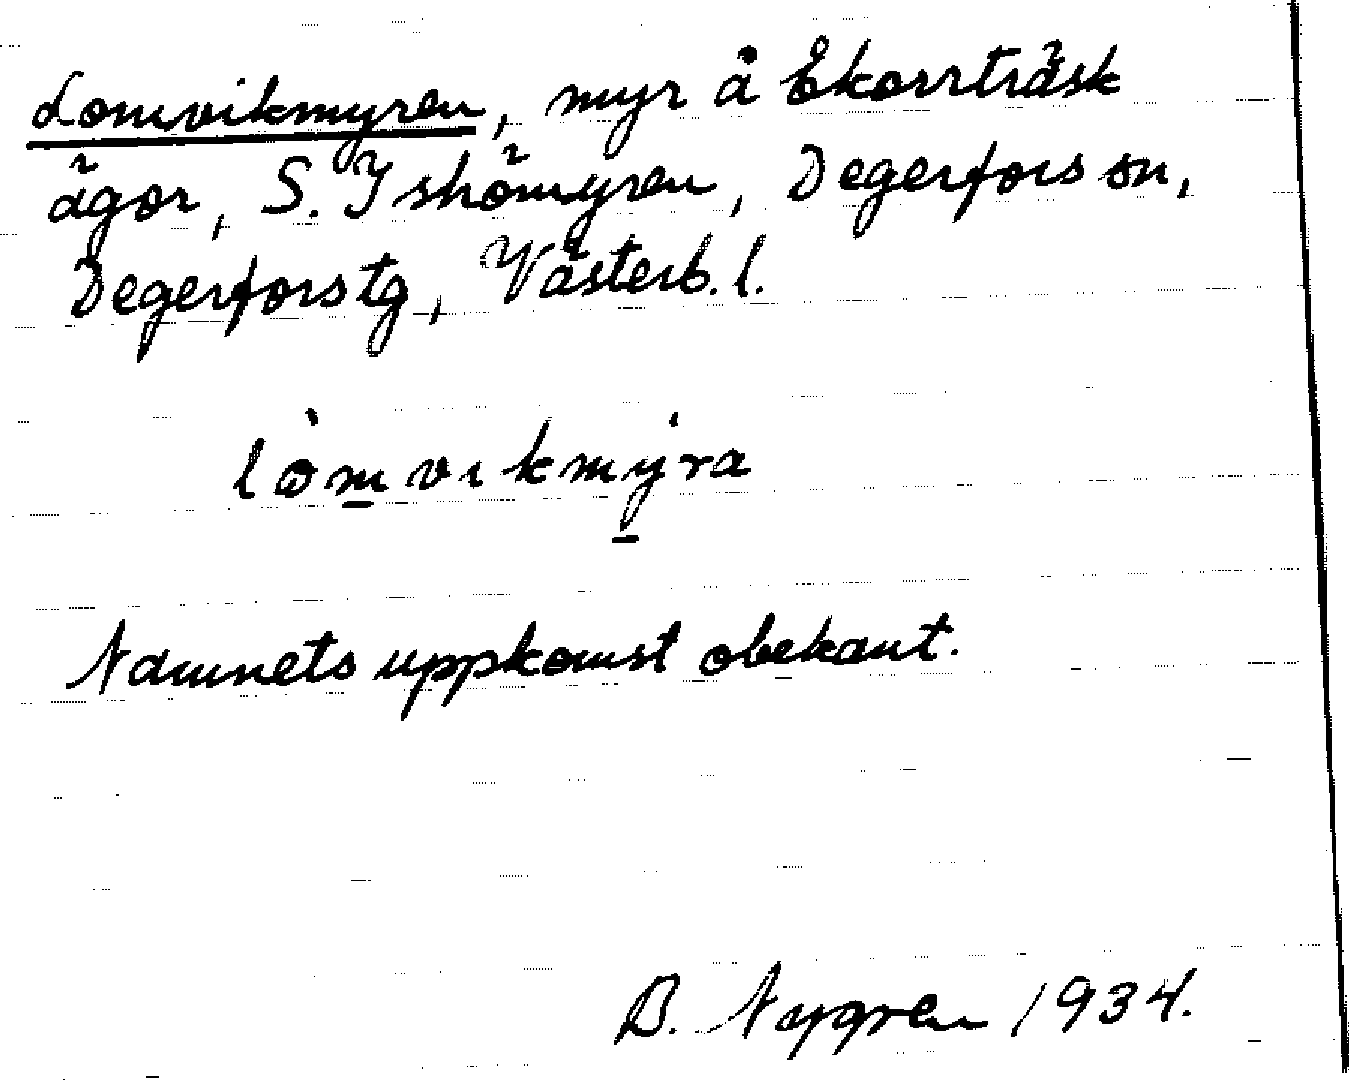 Lomvikmyren, myr å Ekorrträsk
ägor, S. Ishömyren, Degerfors sn,
Degerfors tg, Västerb. l.
lòmvikmýra
Namnets uppkomst obekant.
B. Nygren 1934.